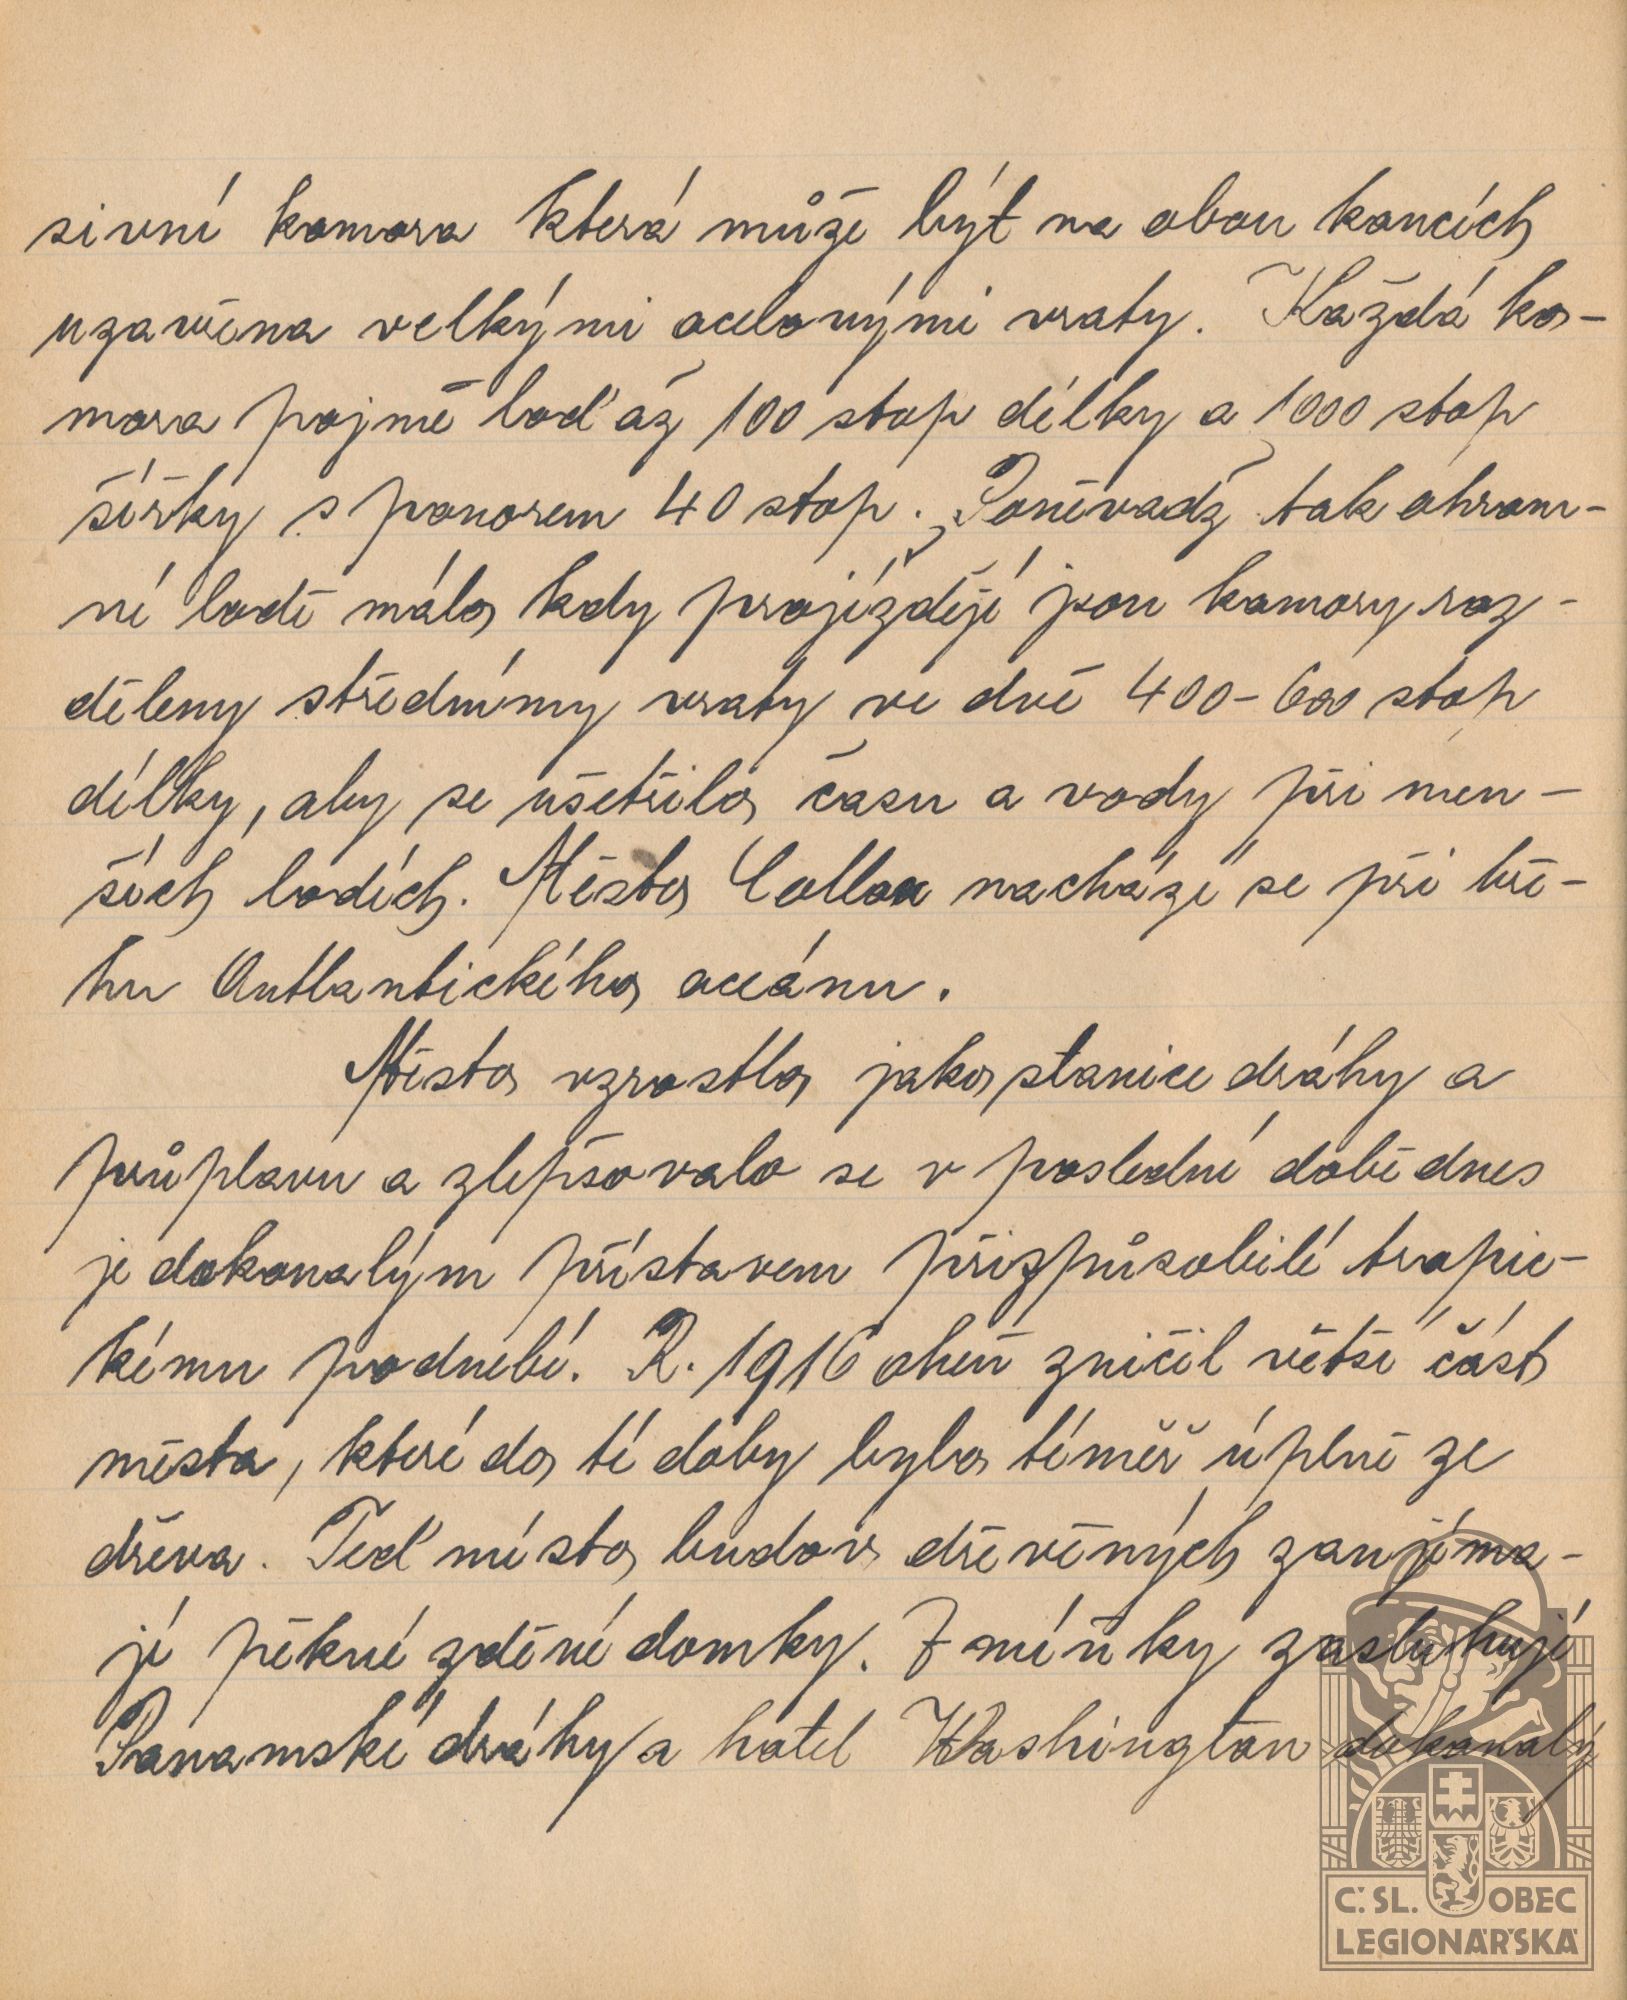 sivní komora která může být na obou koncích
uzavřena velkými ocelovými vraty. Každá ko-
mora pojmě loď až 100 stop délky a 1000 stop
šířky s ponorem 40 stop. Poněvadž tak ohrom-
né lodě málo kdy projíždějí jsou komory roz-
děleny středními vraty ve dvě 400-600 stop
délky, aby se ušetřilo času a vody při men-
ších lodích. Město Collon nachází se při bře-
hu Antlantického oceánu.
Město vzrostlo jako stanice dráhy a
průplavu a zlepšovalo se v poslední době dnes
je dokonalým přístavem přizpůsobilé tropic-
kému podnebí. R. 1916 oheň zničil větší část
města, které do té doby bylo téměř úplně ze
dřeva. Teď místo budov dřevěných zaujíma-
jí pěkné zděné domky. Zmíňky zasluhují
Panamské dráhy a hotel Washington dokonalý
Č. SL. OBEC
LEGIONÁŘSKÁ